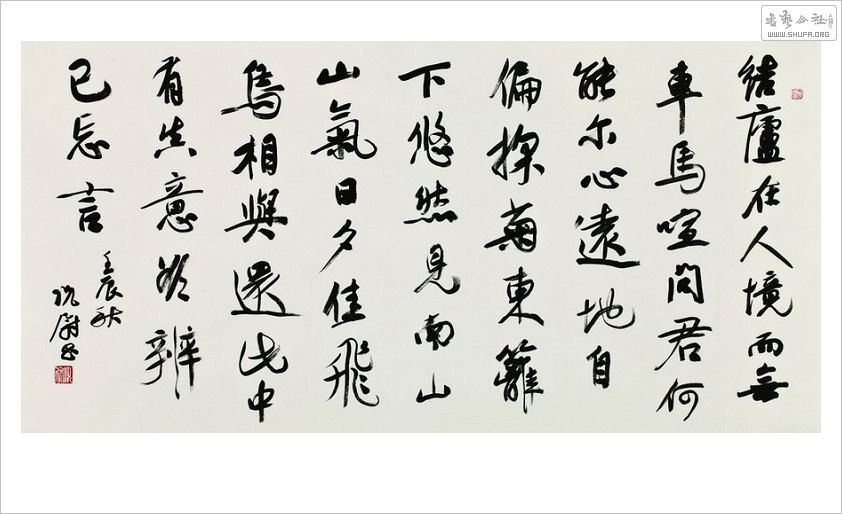 結廬在人境而無
車馬喧問君何
能尔心遠地自
偏採菊東籬
下悠然見南山
山氣日夕佳飛
鳥相與還此中
有真意欲辨
已忘言
壬辰秋
蔚书
書藝公社
WWW.SHUFA.ORG